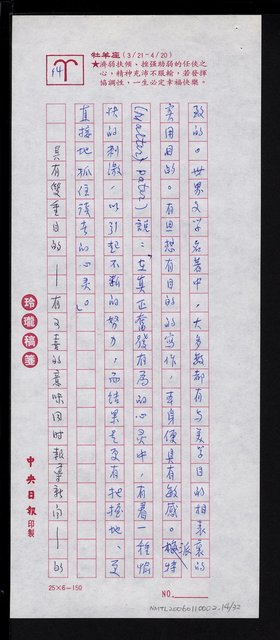 牡羊座(3/21－4/20)
★濟弱扶傾、挫強助弱的任俠之
心,精神充沛不服輸,若發揮
協調性,一生必定幸福快樂。
14
致的。世界文學名著中,大多數都有与美学目的相表裏的
实用目的。有思想有目的的寫作,本身便具有敏感。派特
(Walter Pater)說:「在真正奮發有為的心灵中,有着一種愉
快的刺激,以引起不斷的努力,而結果是更有把握地、更
直接地抓住讀者的心灵。」
具有雙重目的——有文素的意味同时報導新闻——的
玲瓏稿箋
中央日報印製
25×6－150
NO.
NMTL20060110002.14/32